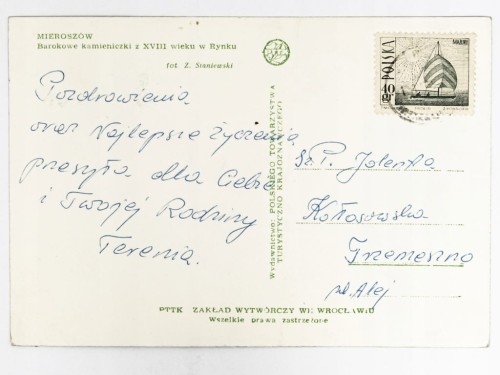 MIEROSZÓW
Barokowe kamieniczki z XVIII wieku w Rynku
fot. Z. Staniewski
Pozdrowienia
oraz Najlepsze Życzenia
przesyła dla Ciebie
i Twojej Rodziny
Terenia.
Wydawnictwo POLSKIEGO TOWARZYSTWA
TURYSTYCZNO KRAJOZNAWCZEGO
POLSKA
40
GR
Sz. P. Jolenta
Kołosowska
Trzemeszno
pl. Alej
PTTK ZAKŁAD WYTWÓRCZY WE WROCŁAWIU
Wszelkie prawa zastrzeżone